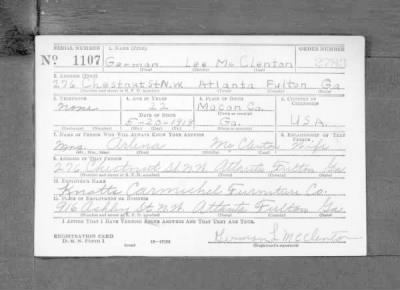 SERIAL NUMBER 1. NAME (Print) ORDER NUMBER
Nº 1107 German Lee McClenton
(First) (Middle) (Last)
2. ADDRESS (Print)
276 Chestnut St N.W. Atlanta Fulton Ga.
3. TELEPHONE 4. AGE IN YEARS 5. PLACE OF BIRTH 6. COUNTRY OF CITIZENSHIP
None 22 Macon Co.
DATE OF BIRTH
5-20-1918 Ga. U.S.A.
7. NAME OF PERSON WHO WILL ALWAYS KNOW YOUR ADDRESS 8. RELATIONSHIP OF THAT PERSON
Mrs. Arlena McClenton Wife
9. ADDRESS OF THAT PERSON
276 Chestnut St N.W. Atlanta Fulton Ga.
10. EMPLOYER'S NAME
Knotts Carmichel Furniture Co.
11. PLACE OF EMPLOYMENT OR BUSINESS
Ashby St. N.W. Atlanta Fulton Ga.
I AFFIRM THAT I HAVE VERIFIED ABOVE ANSWERS AND THAT THEY ARE TRUE.
REGISTRATION CARD
D. S. S. FORM 1
German L McClenton
(Registrant's signature)